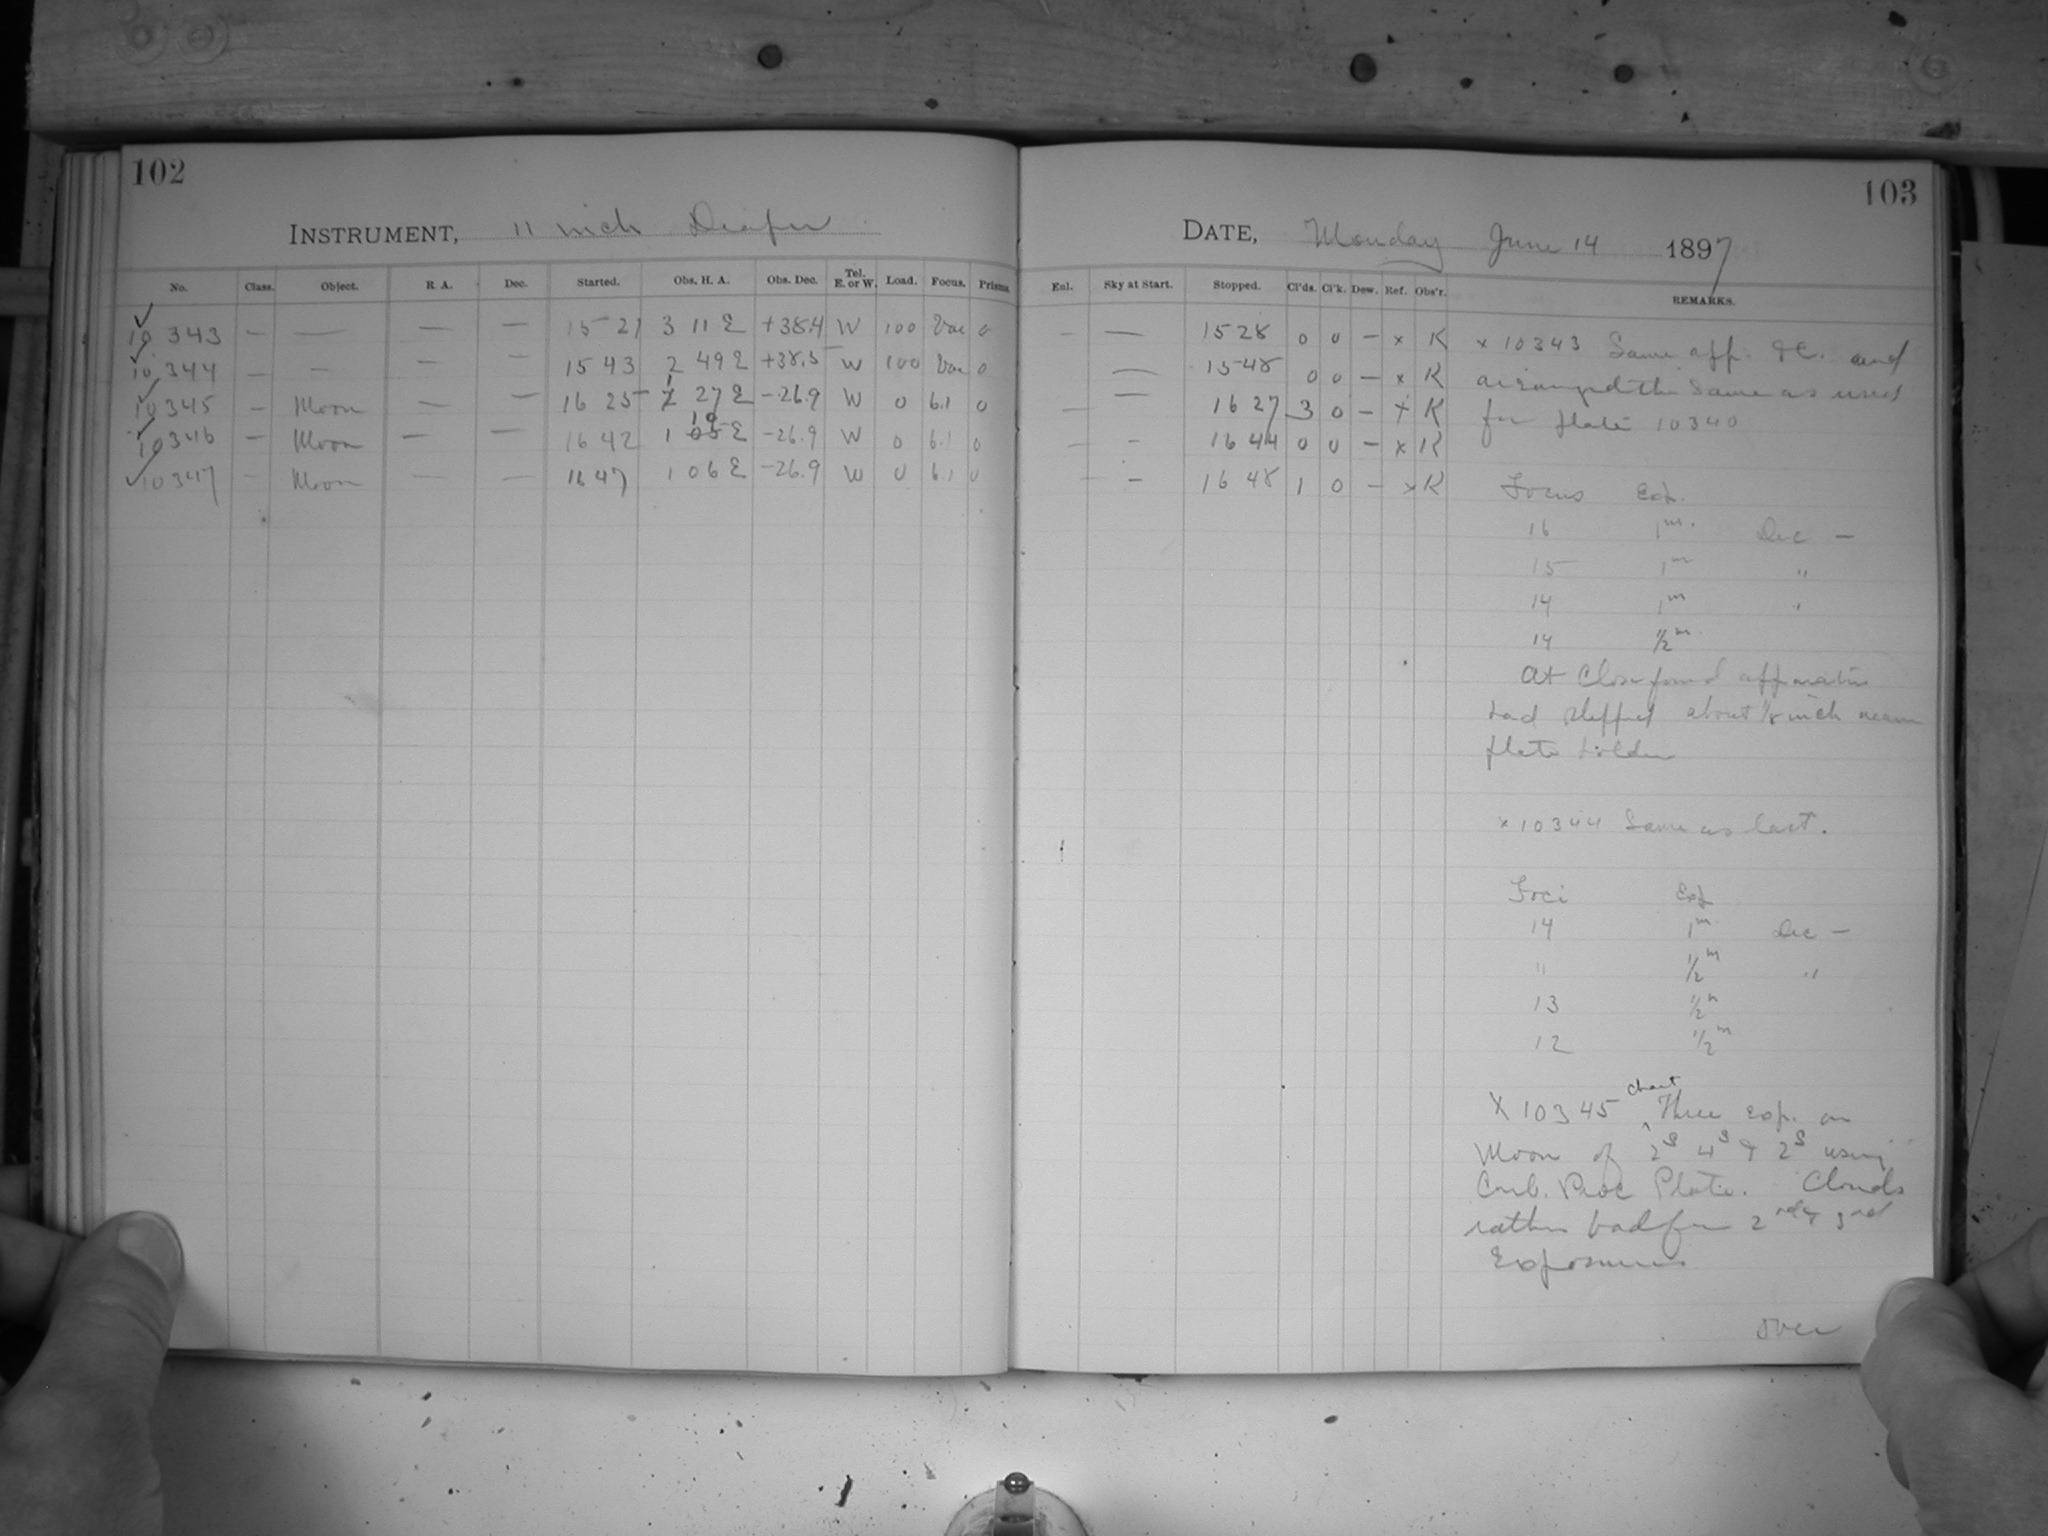 102
INSTRUMENT, 11 inch Draper
No. Class. Object. R. A. Dec. Started. Obs. H. A. Obs. Dec. Tel. E. or W. Load. Focus. Prisms
10343 — — — — 15 27 3 11 E +38.4 W 100 Var 0
10344 — — — — 15 43 2 49 E +38.5 W 100 Var 0
10345 — Moon — — 16 25 1 27 E -26.9 W 0 6.1 0
10346 — Moon — — 16 42 1 10 E -26.9 W 0 6.1 0
10347 — Moon — — 16 47 1 06 E -26.9 W 0 6.1 0
103
DATE, Monday June 14 1897
Enl. Sky at Start. Stopped. Cl'ds. Cl'k. Dew. Ref. Obs'r. REMARKS.
— — 15 28 0 0 — x K
— 15 48 0 0 — x K
— — 16 27 3 0 — x K
— — 16 44 0 0 — x K
— — 16 48 1 0 — x K
x 10343 Same app. &c. and
arranged the same as used
for plate 10340
Focus Exp.
16 1m. Dec —
15 1m "
14 1m "
14 1/2m
At close found apparatus
had slipped about 1/8 inch nearer
plate holder
x 10344 Same as last.
Foci Exp
14 1m Dec —
" 1/2m "
13 1/2m
12 1/2m
chart
X 10345 Three exp. on
Moon of ^ 2s 4s & 2s using
Carb. Proc Plate. Clouds
rather bad for 2nd & 3rd
Exposures
over